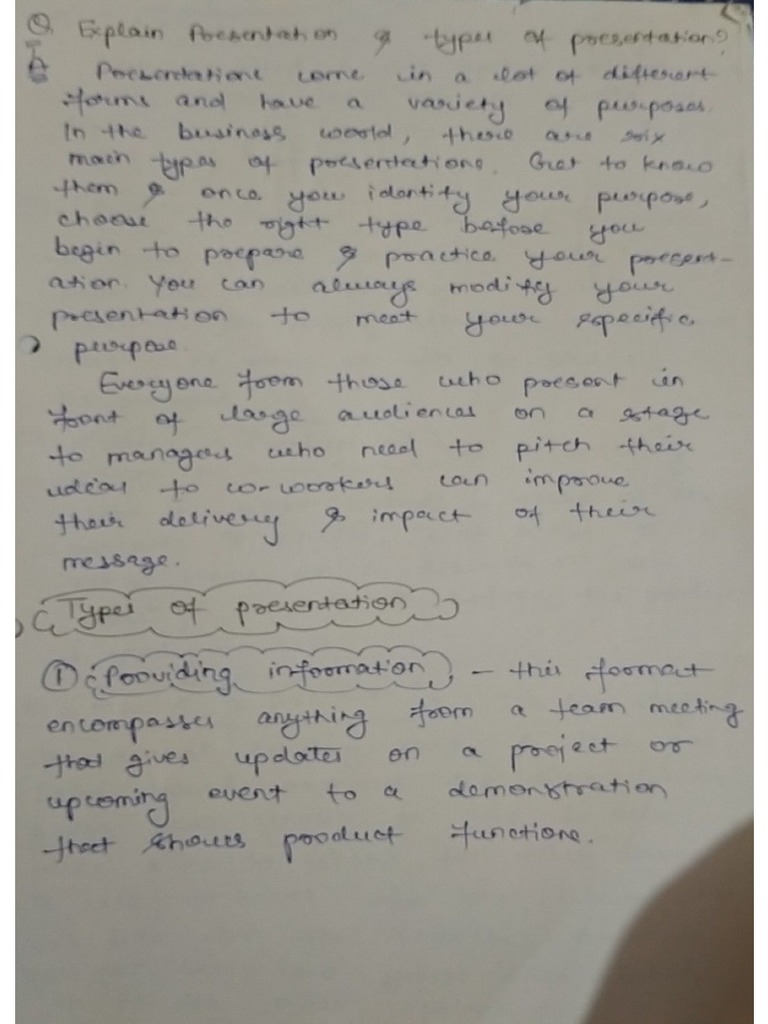 Q. Explain Presentation & types of presentation?
A Presentations come in a lot of different
forms and have a variety of purposes.
In the business world, there are six
main types of presentations. Get to know
them & once you identify your purpose,
choose the right type before you
begin to prepare & practice your present-
ation. You can always modify your
presentation to meet your specific
purpose.
Everyone from those who present in
front of large audiences on a stage
to managers who need to pitch their
ideas to co-workers can improve
their delivery & impact of their
message.
Types of presentation
① Providing information - this format
encompasses anything from a team meeting
that gives updates on a project or
upcoming event to a demonstration
that shows product functions.